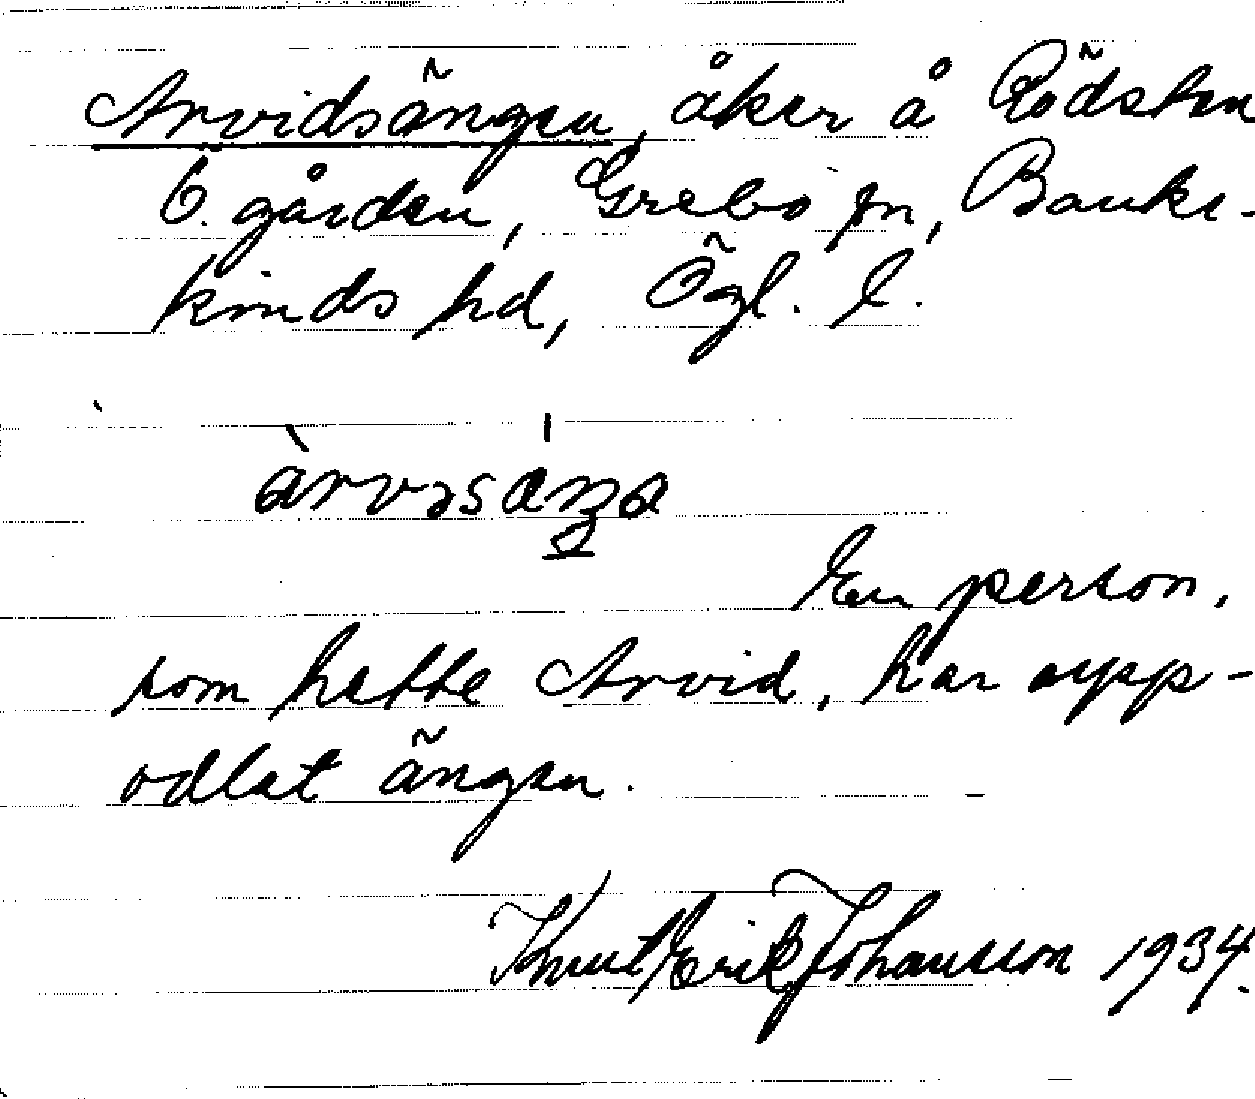 Arvidsängen, åker å Rödsten
Ö. gården, Grebo sn, Banke-
kinds hd, Ögl. l.
En person,
som hette Arvid, har upp-
odlat ängen.
Knut Erik Johansson 1934.